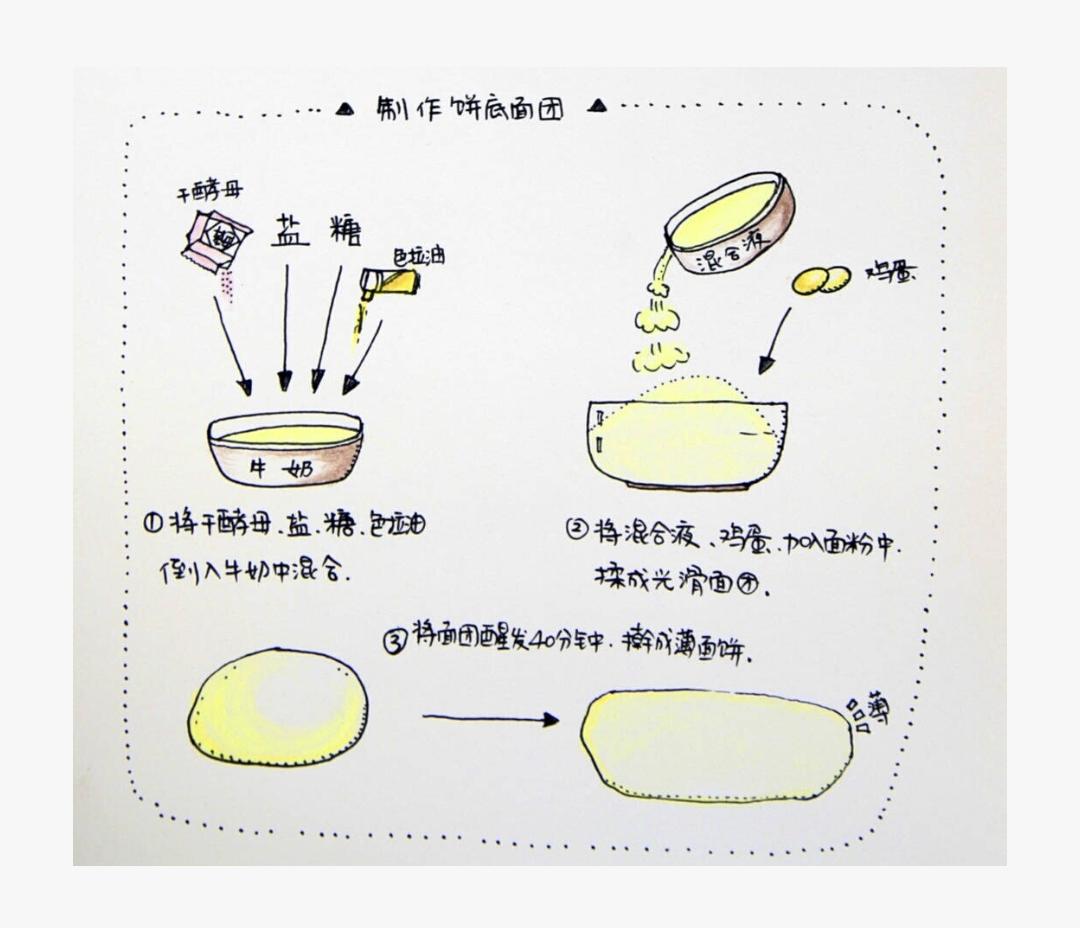 制作饼底面团
干酵母
盐
糖
色拉油
牛奶
①将干酵母、盐、糖、色拉油
倒入牛奶中混合.
混合液
鸡蛋
②将混合液、鸡蛋、加入面粉中.
揉成光滑面团.
③将面团醒发40分钟.擀成薄面饼.
薄